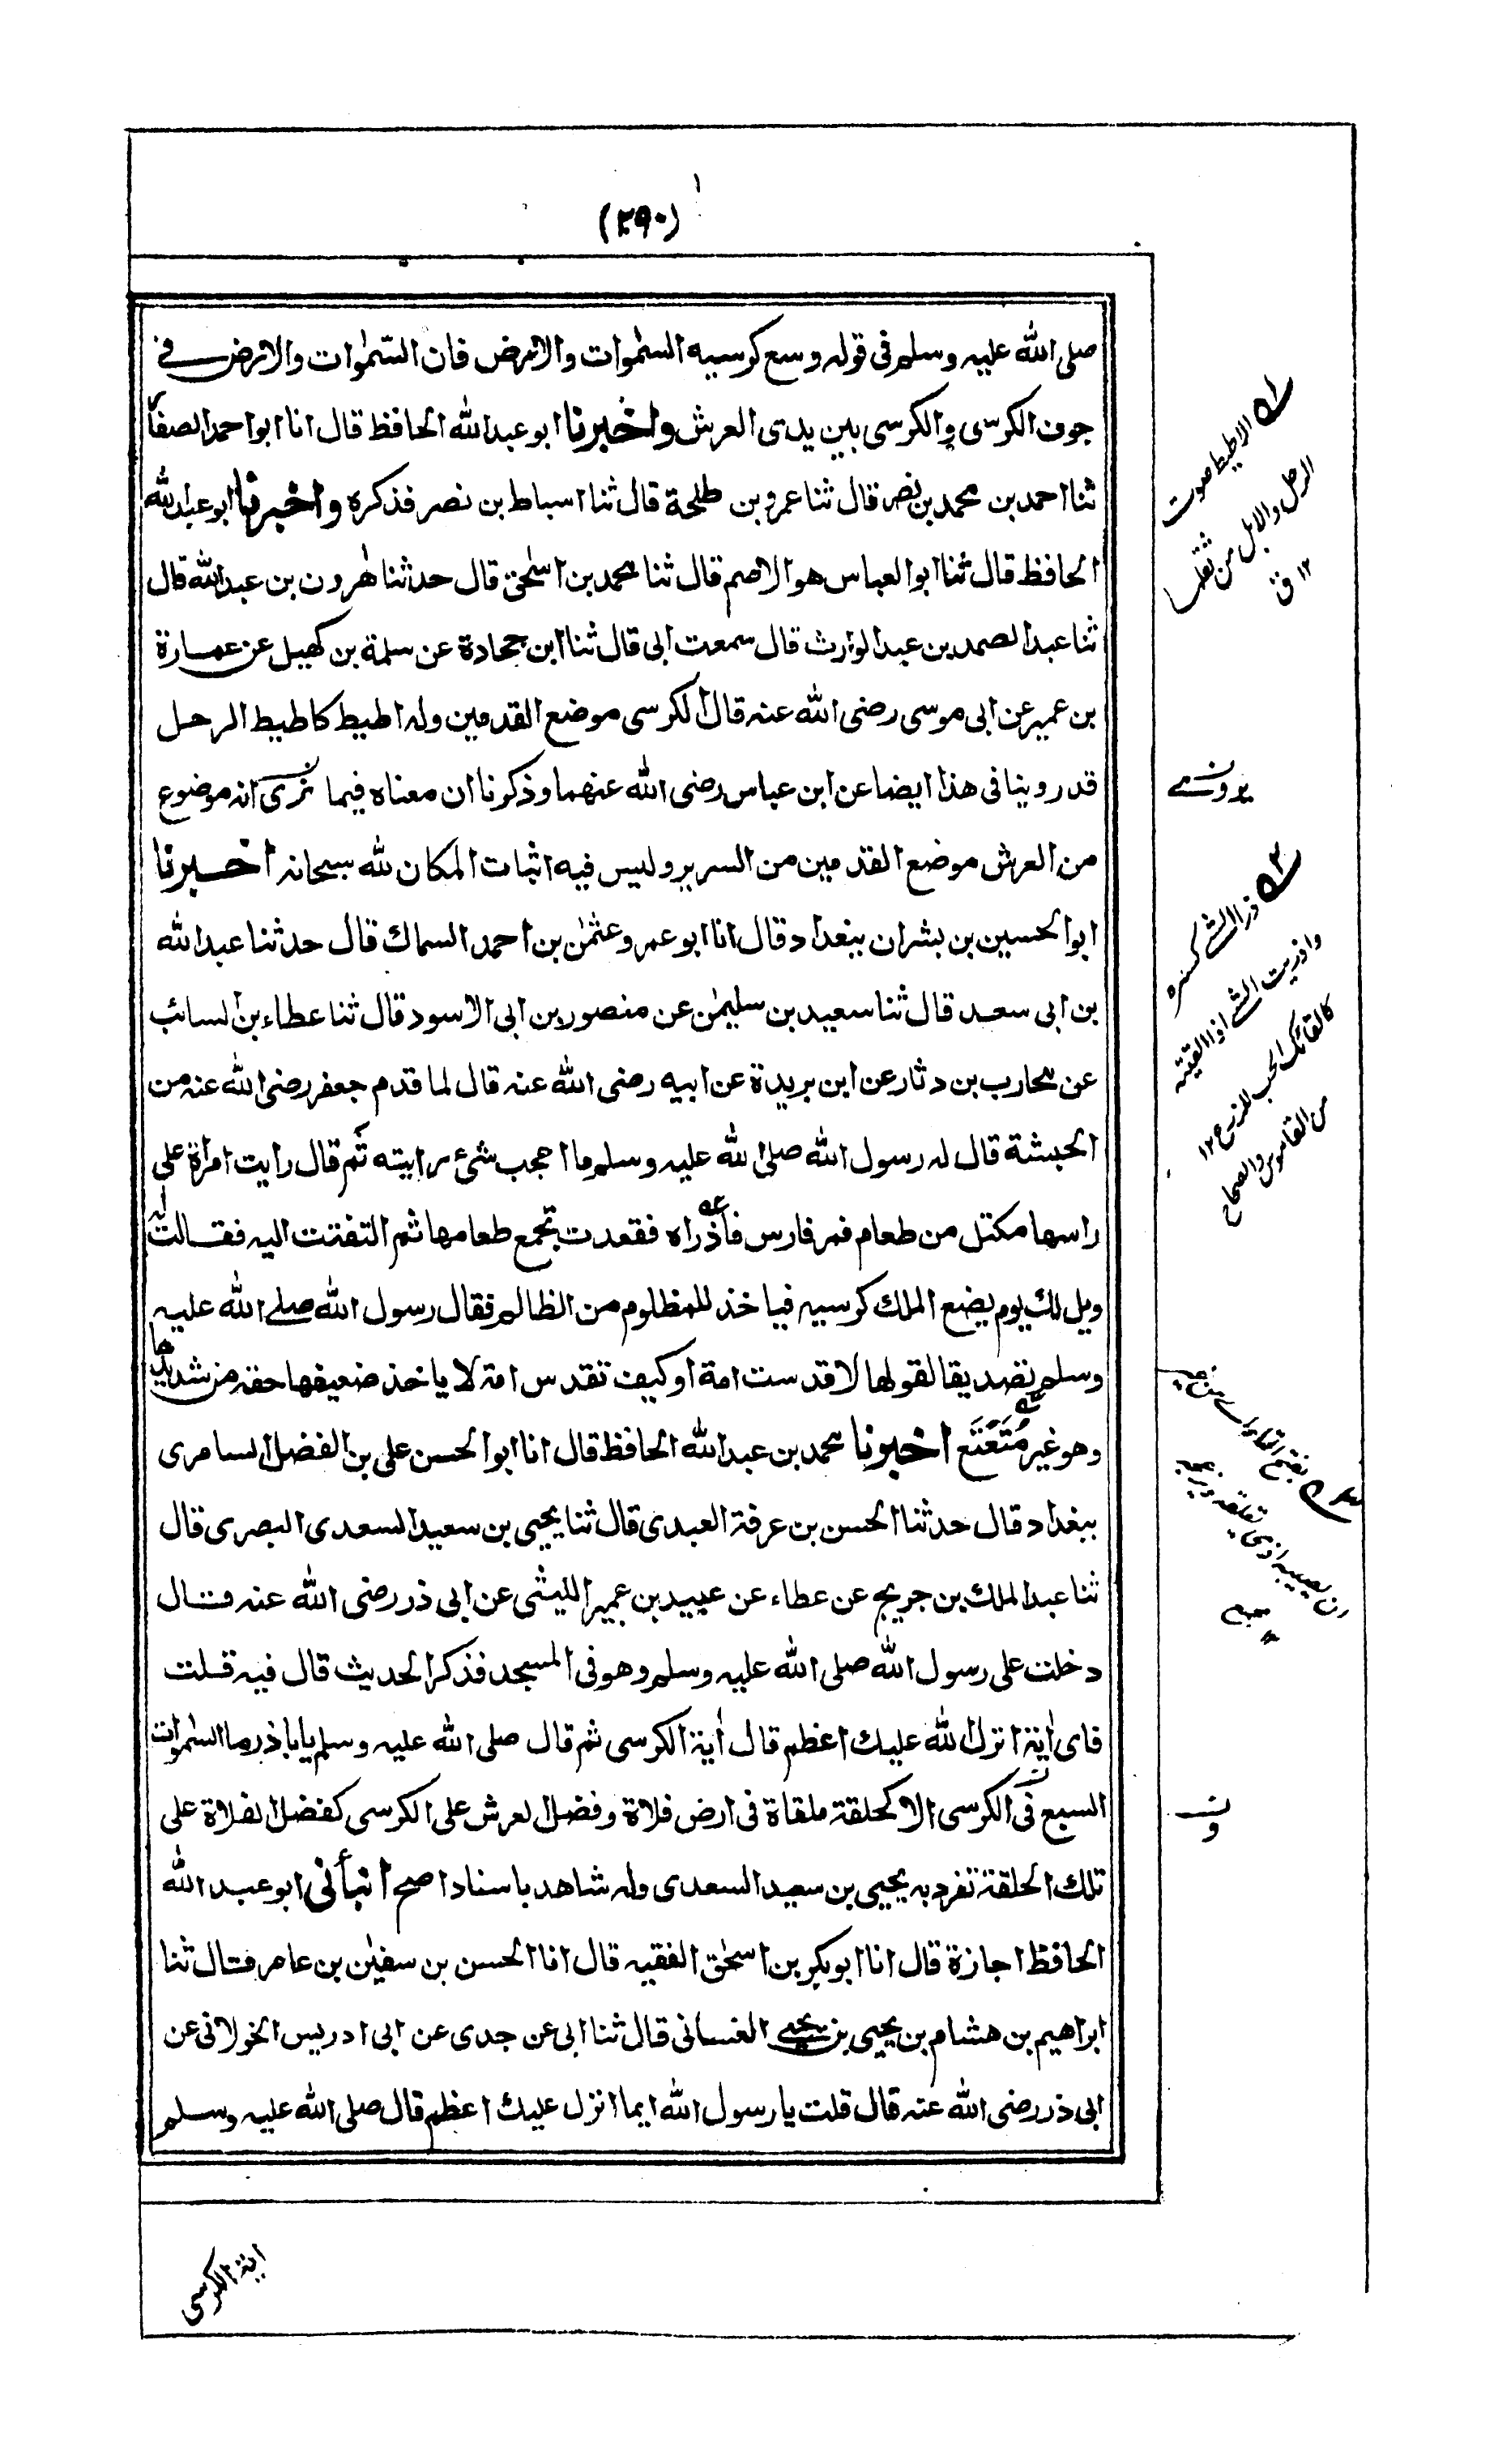 (۲۹۰)
صلى الله عليه وسلم فى قوله وسع كرسيه السمٰوات والارض فان السّمٰوات والارض فى
جوف الكرسى والكرسى بين يدى العرش واخبرنا ابو عبد الله الحافظ قال انا ابو احمد الصفار
ثنا احمد بن محمد بن نصر قال ثنا عمرو بن طلحة قال ثنا اسباط بن نصر فذكره واخبرنا ابو عبد الله
الحافظ قال ثنا ابو العباس هو الاصم قال ثنا محمد بن اسحٰق قال حدثنا هٰرون بن عبد الله قال
ثنا عبد الصمد بن عبد الوارث قال سمعت ابى قال ثنا ابن جحادة عن سلمة بن كهيل عن عمارة
بن عمير عن ابى موسى رضى الله عنه قال الكرسى موضع القدمين وله اطيط كاطيط الرحل
قد روينا فى هذا ايضا عن ابن عباس رضى الله عنهما وذكرنا ان معناه فيما نرى انه موضوع
من العرش موضع القدمين من السرير وليس فيه اثبات المكان لله سبحانه اخبرنا
ابو الحسين بن بشران ببغداد قال انا ابو عمرو عثمٰن بن احمد السماك قال حدثنا عبد الله
بن ابى سعد قال ثنا سعيد بن سليمٰن عن منصور بن ابى الاسود قال ثنا عطاء بن السائب
عن محارب بن دثار عن ابن بريدة عن ابيه رضى الله عنه قال لما قدم جعفر رضى الله عنه من
الحبشة قال له رسول الله صلى الله عليه وسلم ما اعجب شئ رايته ثم قال رايت امراة على
راسها مكتل من طعام فمر فارس فاذراه فقعدت تجمع طعامها ثم التفتت اليه فقالت له
ويل لك يوم يضع الملك كرسيه فياخذ للمظلوم من الظالم فقال رسول الله صلى الله عليه
وسلم تصديقا لقولها لا قدست امة او كيف تقدس امة لا ياخذ ضعيفها حقه من شديدها
وهو غير مُتَعْتَع اخبرنا محمد بن عبد الله الحافظ قال انا ابو الحسن على بن الفضل السامرى
ببغداد قال حدثنا الحسن بن عرفة العبدى قال ثنا يحيى بن سعيد السعدى البصرى قال
ثنا عبد الملك بن جريج عن عطاء عن عبيد بن عمير الليثى عن ابى ذر رضى الله عنه قال
دخلت على رسول الله صلى الله عليه وسلم وهو فى المسجد فذكر الحديث قال فيه قلت
فاى اٰية انزل الله عليك اعظم قال اٰية الكرسى ثم قال صلى الله عليه وسلم يا باذر ما السمٰوات
السبع فى الكرسى الا كحلقة ملقاة فى ارض فلاة وفضل العرش على الكرسى كفضل الفلاة على
تلك الحلقة تفرد به يحيى بن سعيد السعدى وله شاهد باسناد اصح انبأنى ابو عبد الله
الحافظ اجازة قال انا ابو بكر بن اسحٰق الفقيه قال انا الحسن بن سفيٰن بن عامر قال ثنا
ابراهيم بن هشام بن يحيى بن يحيى الغسانى قال ثنا ابى عن جدى عن ابى ادريس الخولانى عن
ابى ذر رضى الله عنه قال قلت يا رسول الله ايما انزل عليك اعظم قال صلى الله عليه وسلم
اية الكرسى
الاطيط صوت
الرحل والابل من ثقلها
۱۲ ق
يرون
ذرا الشئ كسره
واذريت الشئ اذا القيته
كالقائك الحب للزرع ۱۲
من القاموس والصحاح